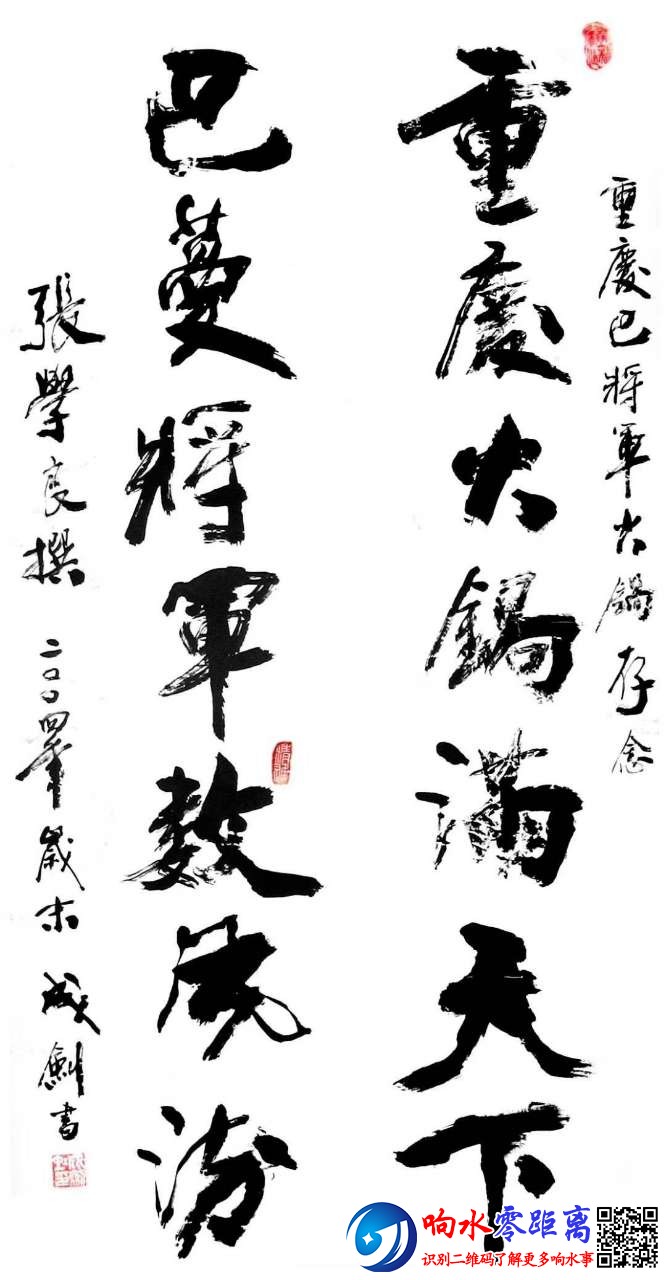 重慶巴將軍火鍋存念
重慶火鍋滿天下
巴蔓將軍數風流
張學良撰 二〇〇四年歲末 成劍書
响水零距离
识别二维码了解更多响水事